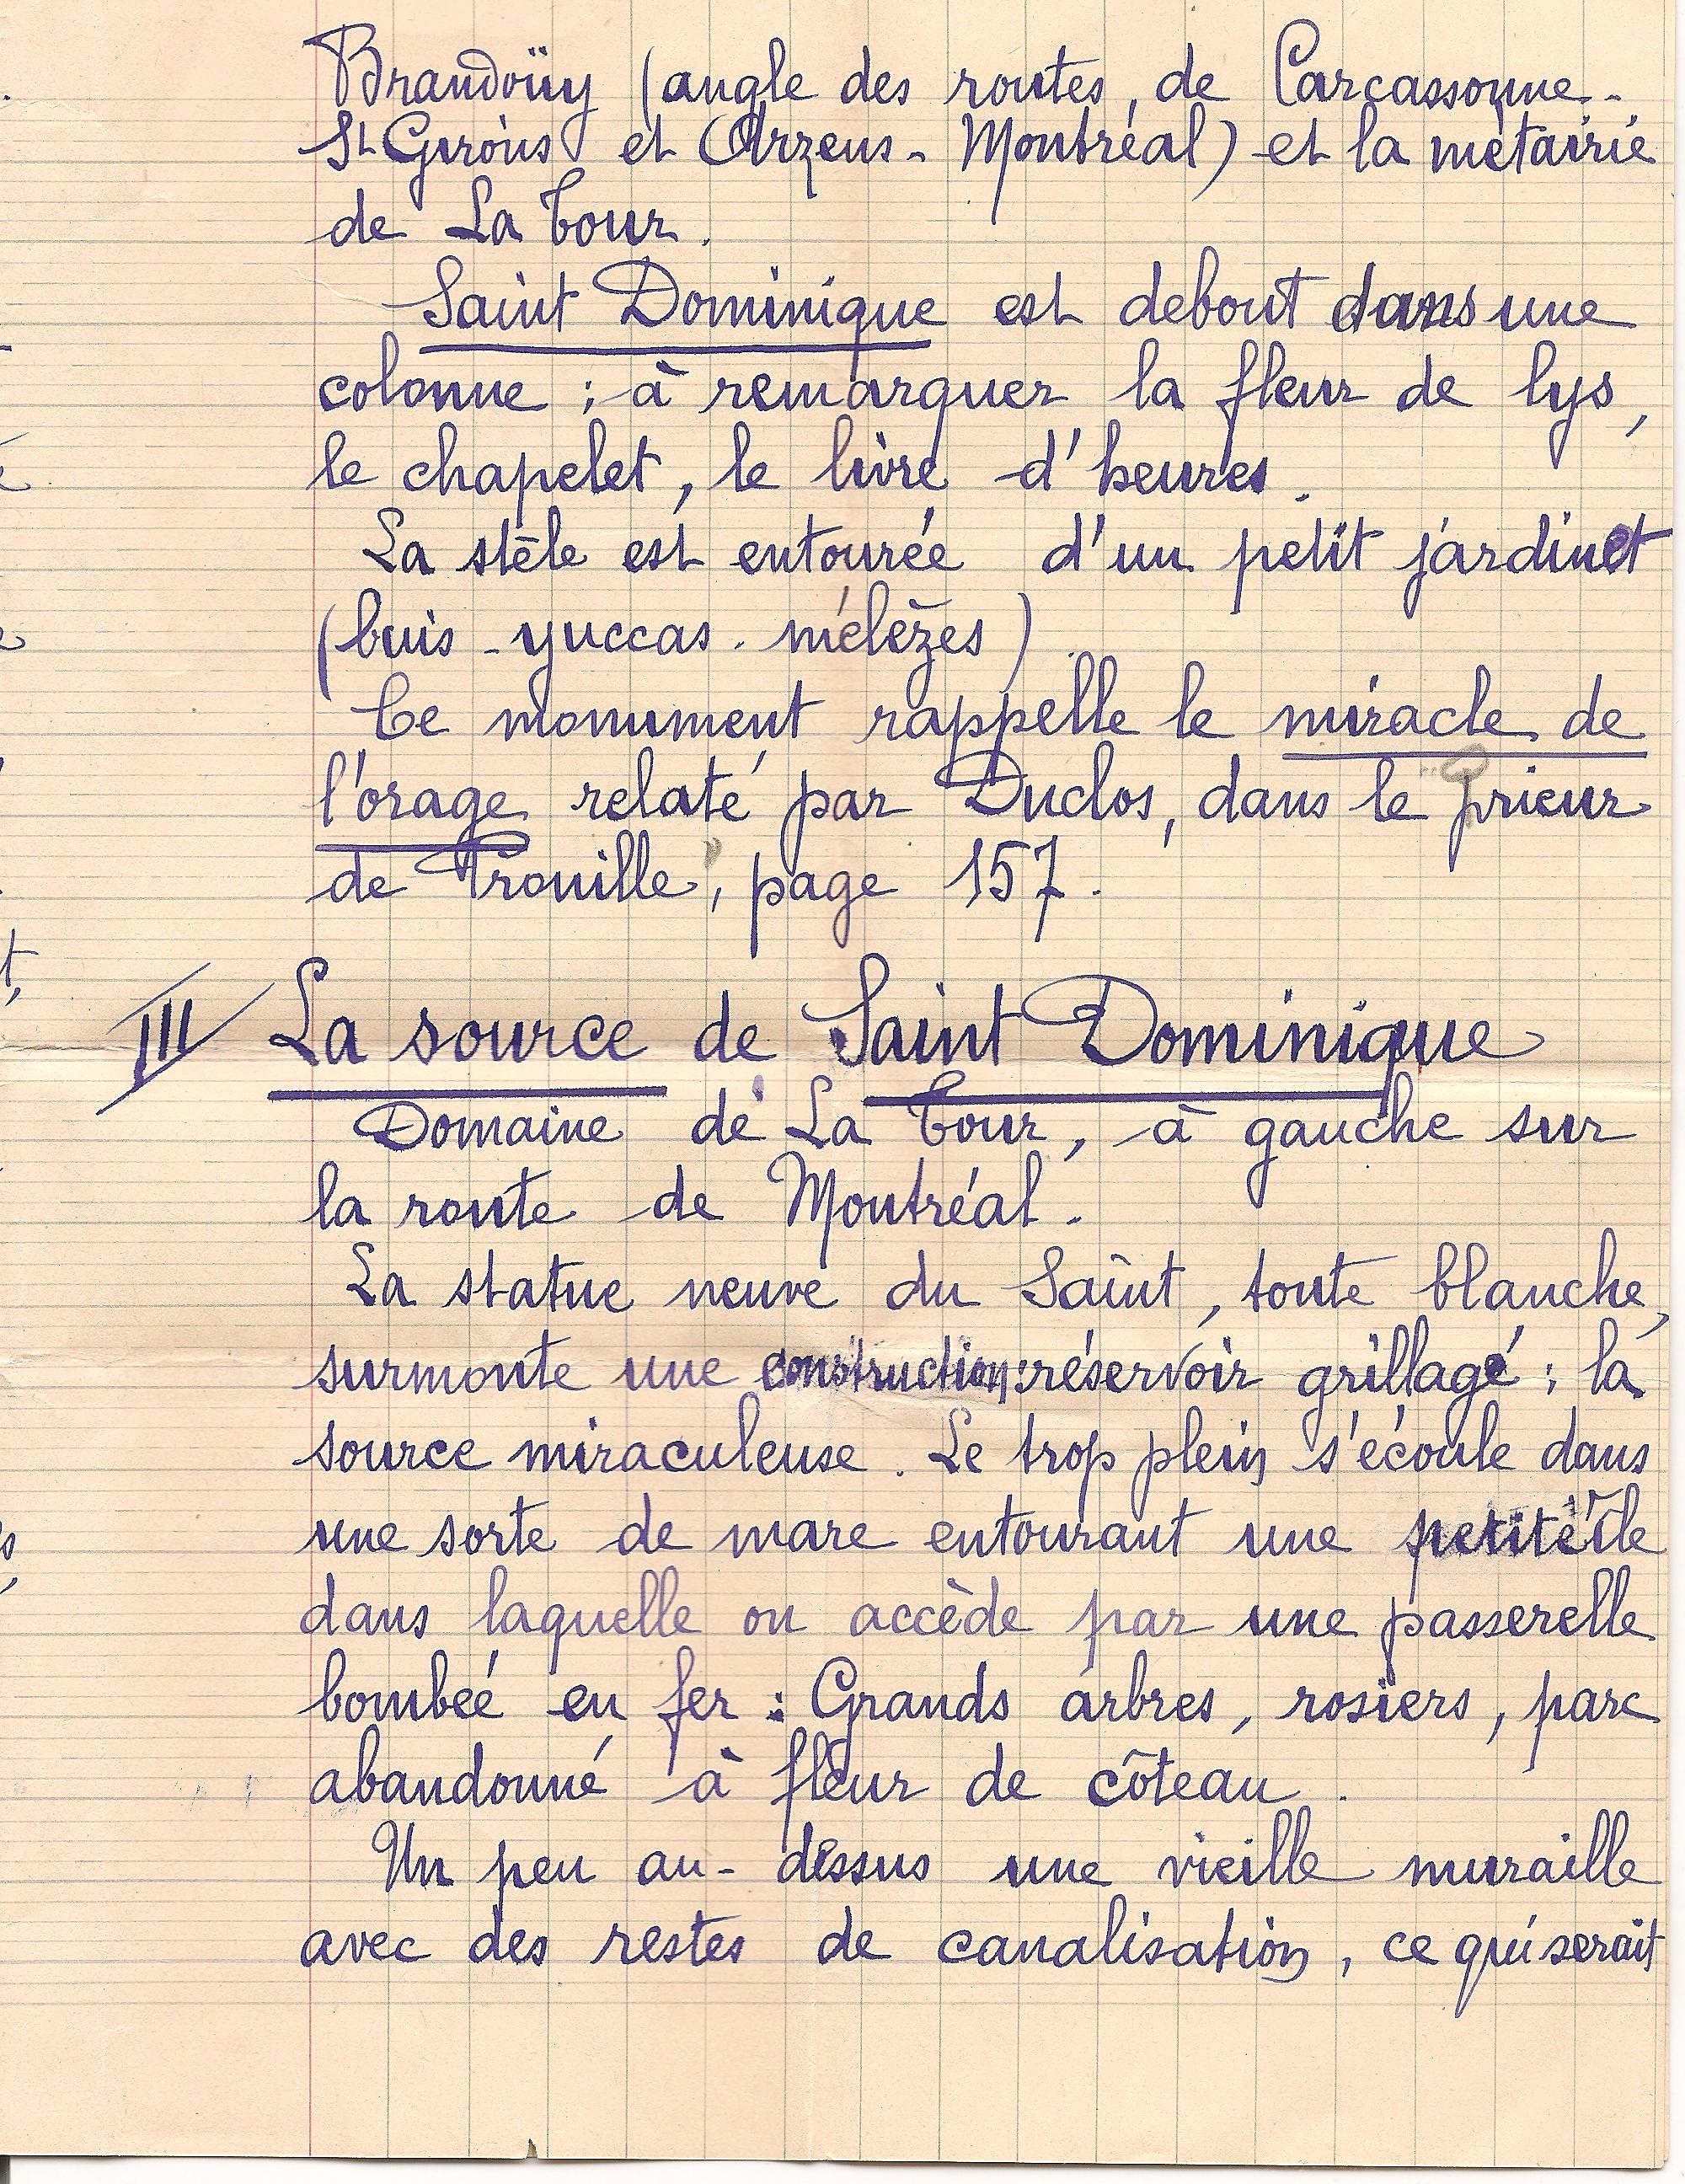 Brandoüy (angle des routes, de Carcassonne-
St Girons et Arzens - Montréal) et la métairie
de La Tour.
Saint Dominique est debout dans une
colonne ; à remarquer la fleur de lys,
le chapelet, le livre d'heures.
La stèle est entourée d'un petit jardinet
(buis - yuccas - mélèzes).
Ce monument rappelle le miracle de
l'orage relaté par Duclos, dans le prieur
de Prouille, page 157.
III La source de Saint Dominique
Domaine de La Tour, à gauche sur
la route de Montréal.
La statue neuve du Saint, toute blanche,
surmonte une construction : réservoir grillagé ; la
source miraculeuse. Le trop plein s'écoule dans
une sorte de mare entourant une petite île
dans laquelle on accède par une passerelle
bombée en fer : Grands arbres, rosiers, parc
abandonné à fleur de côteau.
Un peu au-dessus une vieille muraille
avec des restes de canalisation, ce qui serait